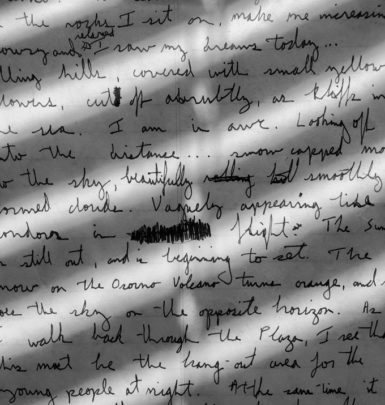 the rocks I sit on, make me increasin
relaxed
owsy and I saw my dreams today...
lling hills, covered with small yellow
lowers, cut off abrubtly, as kliffs in
he sea. I am in awe. Looking off
nto the distance... snow capped mo
the sky, beautifully smoothly
ormed clouds. Vaguely appearing like
ondors in flight. The Sun
s still out, and is beginning to set. The
now on the Osorno Volcano turns orange, and
oes the sky on the opposite horizon. As
I walk back through the Plaza, I see tha
his must be the hang-out area for the
young people at night. At the same-time it